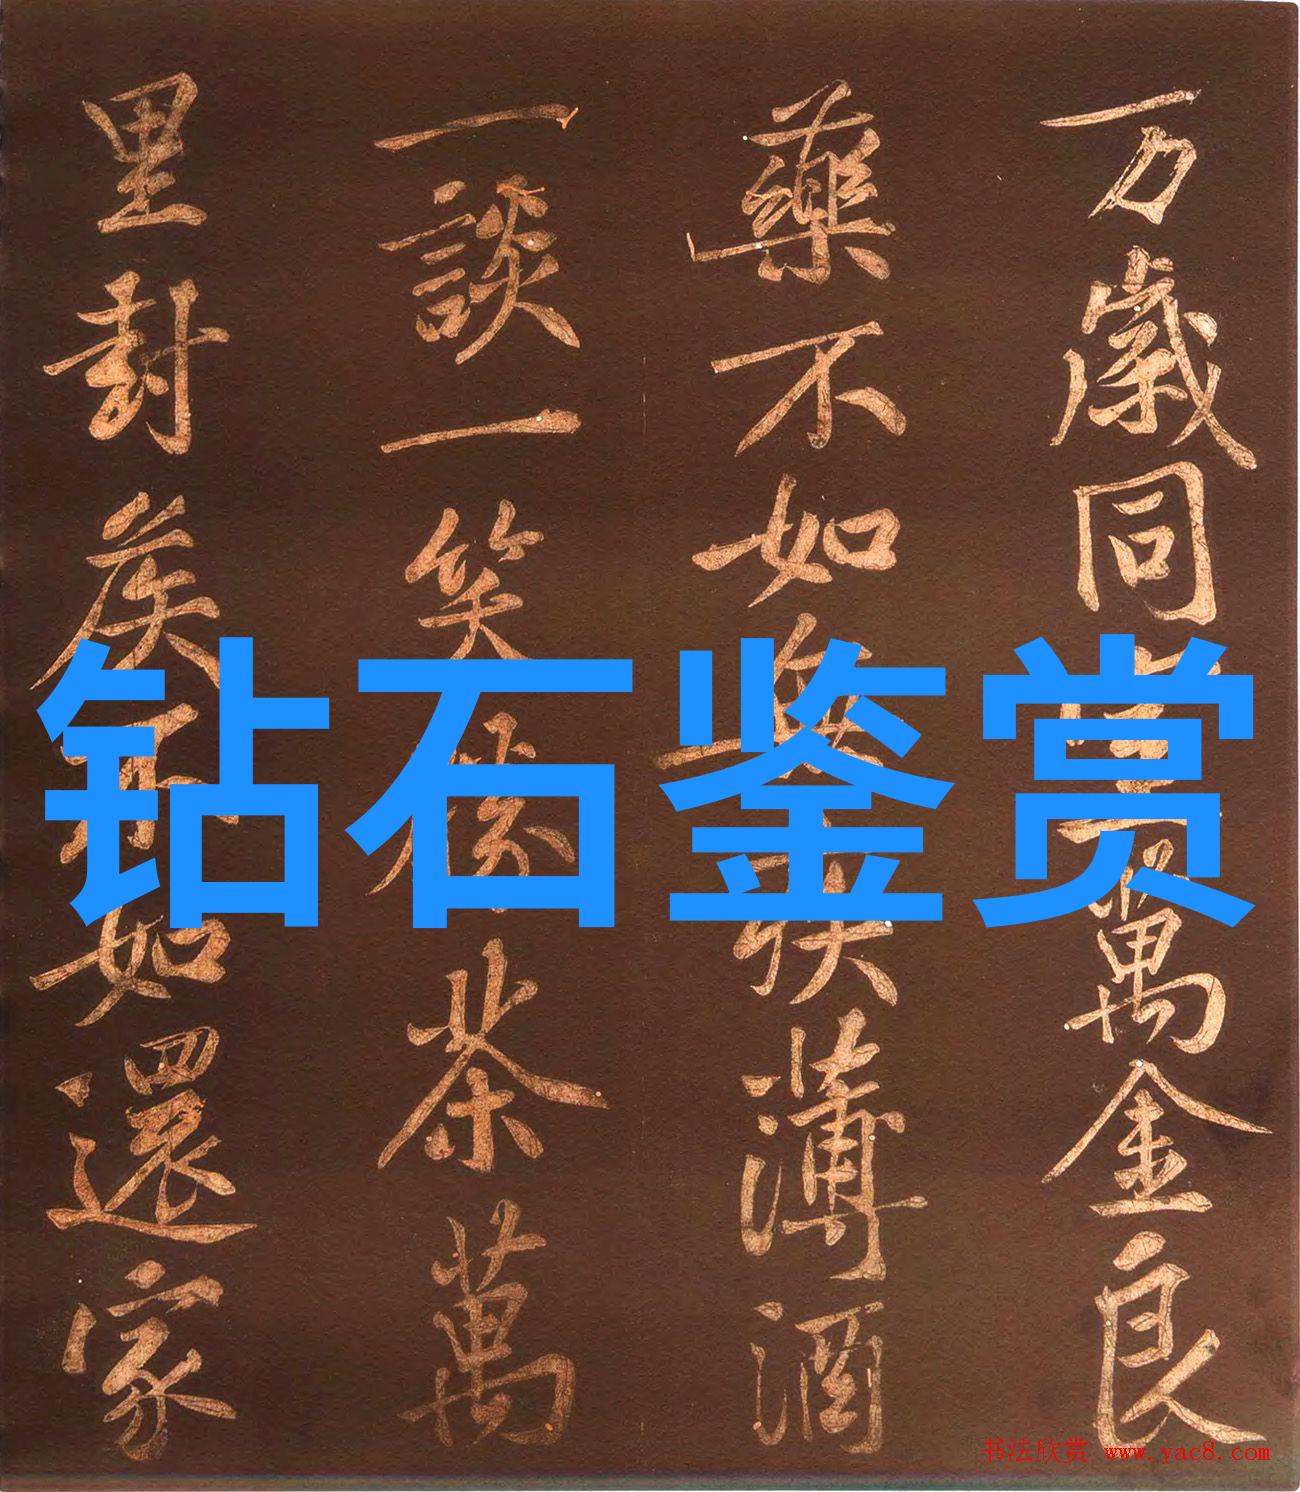 万歲同萬金良
藥不如無疾薄酒
一談一笑勝茶萬
里封矦不如還家
钻石鉴赏
书法欣赏 www.yac8.com